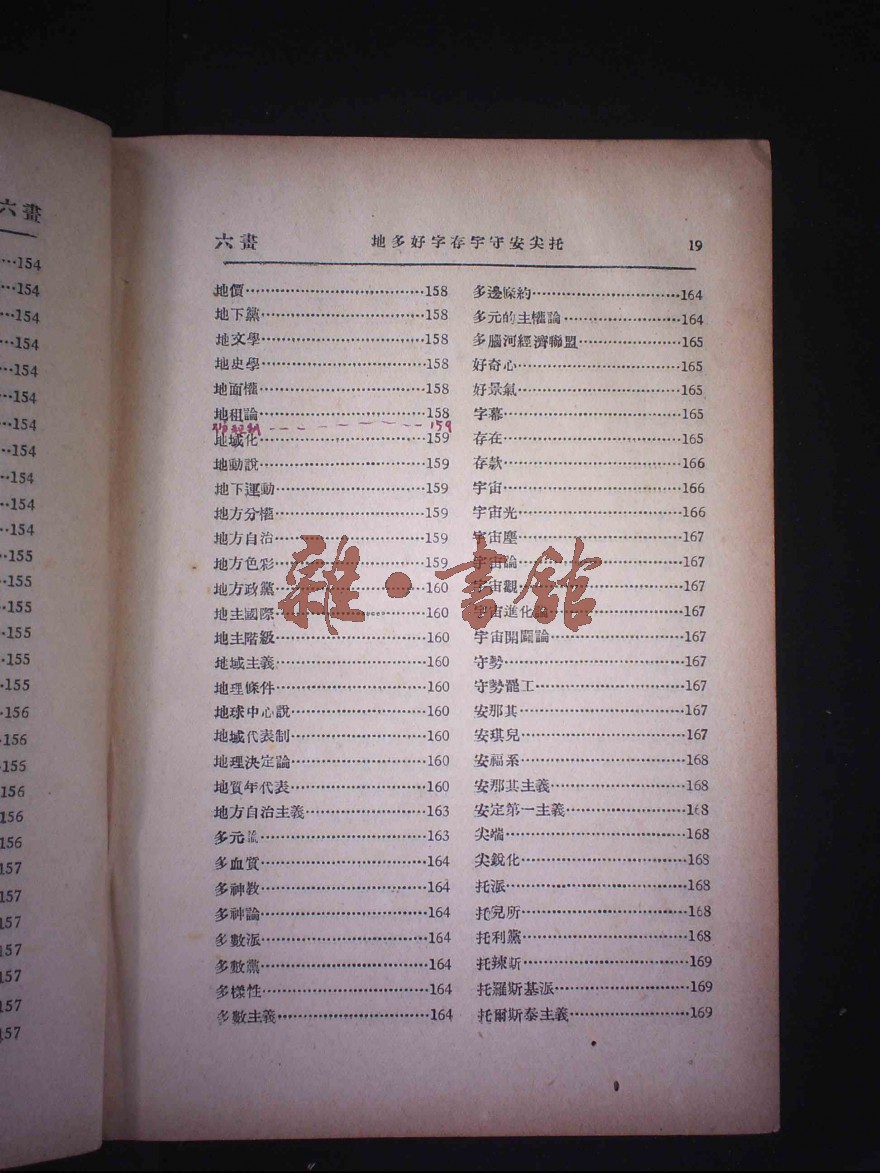 六畫
…154
…154
…154
…154
…154
…154
…154
…154
…154
…154
…154
…155
…155
…155
…155
…155
…155
…156
…156
…155
156
156
156
157
157
157
157
157
157
157
六畫 地多好字存宇守安尖托 19
地價……158
地下黨……158
地文學……158
地史學……158
地面權……158
地租論……158
159
地域化……159
地動說……159
地下運動……159
地方分權……159
地方自治……159
地方色彩……159
地方政黨……160
地主國際……160
地主階級……160
地域主義……160
地理條件……160
地球中心說……160
地域代表制……160
地理決定論……160
地質年代表……160
地方自治主義……163
多元論……163
多血質……164
多神教……164
多神論……164
多數派……164
多數黨……164
多樣性……164
多數主義……164
多邊條約……164
多元的主權論……164
多腦河經濟聯盟……165
好奇心……165
好景氣……165
字幕……165
存在……165
存款……166
宇宙……166
宇宙光……166
宇宙塵……167
宇宙論……167
宇宙觀……167
宇宙進化論……167
宇宙開闢論……167
守勢……167
守勢罷工……167
安那其……167
安琪兒……167
安福系……168
安那其主義……168
安定第一主義……168
尖端……168
尖銳化……168
托派……168
托兒所……168
托利黨……168
托辣斯……169
托羅斯基派……169
托爾斯泰主義……169
雜·書館